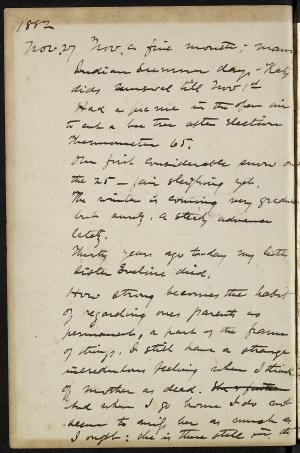 1882
Nov. 27 Nov. a fine month; many
Indian Summer days. Katy
dids survived till Nov 1st
Had a picnic in the open air
to cut a bee tree after election
Thermometer 65.
Our first considerable snow on
the 25 — fair sleighing yet.
The winter is coming very gradual
but surely. a steady advance
lately.
Thirty years ago to-day my little
sister Eveline died.
How strong becomes the habit
of regarding ones parents as
permanent, a part of the frame
of things. I still have a strange
incredulous feeling when I think
of mother as dead.
And when I go home I do not
seem to miss her as much as
I ought; she is there still in